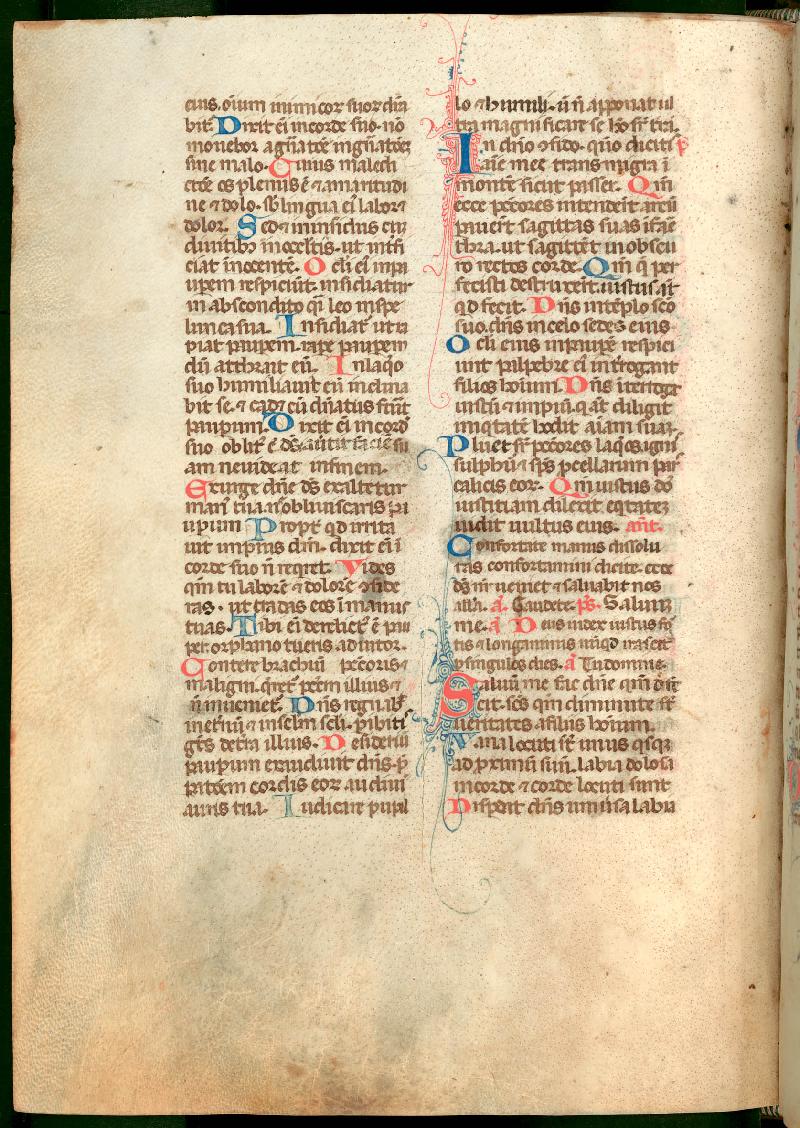 eius. oĩum inimicoꝝ suoꝝ dñabit᷑
bit᷑. Dixit eĩ in corde suo. nõ
mouebor a gñatõe in gñatõeʒ
sine malo. Cuius maledi
ctõe os plenũ ẽ ⁊ amaritudi
ne ⁊ dolo. sb̾ lingua eĩ labor ⁊
dolor. Sedet in insidiis cũ
diuitibꝰ in occultis. ut int̾fi
ciat ĩnocentẽ. Oculi eĩ in pau
uperem respiciũt. insidiatur
in abscondito qͥ leo in spe
lunca sua. Insidiat᷑ ut ra
piat pauꝑem. rape pauꝑem
dũ attrahit eũ. In laq̾o
suo humiliauit eũ inclina
bit se. ⁊ cadet cũ dñatus fũit
pauꝑum. Dixit eĩ in cord̾
suo oblit᷑ ẽ ds̃ auertit faciẽ su
am ne uideat in finem.
Exurge dñe ds̃ exaltetur
manꝰ tua. ñ obliuiscaris pa
uꝑum. Propt̾ qd̾ irrita
uit impius dm̃. dixit eĩ ĩ
corde suo ñ reqret. Vides
qm̃ tu laborẽ ⁊ dolorẽ ↄside
ras. ut tradas eos ĩ manus
tuas. Tibi eĩ derelictꝰ ẽ pau
per. orphano tu eris adiutor.
Contere brachiũ pctoris ⁊
maligni. q̾ret᷑ pctm̃ illius ⁊
ñ inueniet᷑. Dñs regnab̾
in et̾nũ ⁊ in sclm̃ scli. ꝑibitis
gẽs de tra illius. Desideriũ
pauꝑum exaudiuit dñs. p̃
paratõem cordis eoꝝ audiuit
auris tua. Iudicare pupil
lo ⁊ humili. ut ñ apponat ul
tra magnificare se hõ sr̾ trã.
In dñо ↄfido. quõ dicitis
aĩe mee transmigra ĩ
montẽ sicut passer. Qm̃
ecce pctores intenderũt arcũ
pauerũt sagittas suas ĩ fare
thra. ut sagittẽt in obscu
ro rectos corde. Qm̃ q̃ per
fecisti destruxerũt. iustus aũt
qd̾ fecit. Dñs in tẽplo scõ
suo. dñs in celo sedes eius.
Oculi eius in pauꝑẽ respici
unt palpebre eĩ int̾rogant
filios hoĩum. Dñs int̾rogat
iustũ ⁊ impiũ. q̾ aũt diligit
iniqͥtatẽ hodit aĩam suaʒ.
Pluet sr̾ pctores laq̾os. igniſ
sulphur ⁊ sps̃ pcellarum pars
calicis eoꝝ. Qm̃ iustus dñs
iustitiam dilexit eqͥtateʒ
uidit uultus eius. ant̃.
Confortate manus dissolu
tas confortamini dicite. ecce
ds̃ nr̃ ueniet ⁊ saluabit nos
all̃a. a͠. Gaudete. ps̃. Saluũ
me. a͠ Deus iudex iustus for
tis ⁊ longanimis nũqd̾ irascet᷑
ꝑ singulos dies. a͠ Tu domine.
Saluũ me fac dñe qm̃ defe
cit. scs̃ qm̃ diminute st̃
ueritates a filiis hoĩum.
Vana locuti st̃ unus qsq̾
ad ꝓximũ suũ. labia dolosa
in corde ⁊ corde locuti sunt
Disꝑdat dñs uniũsa labia